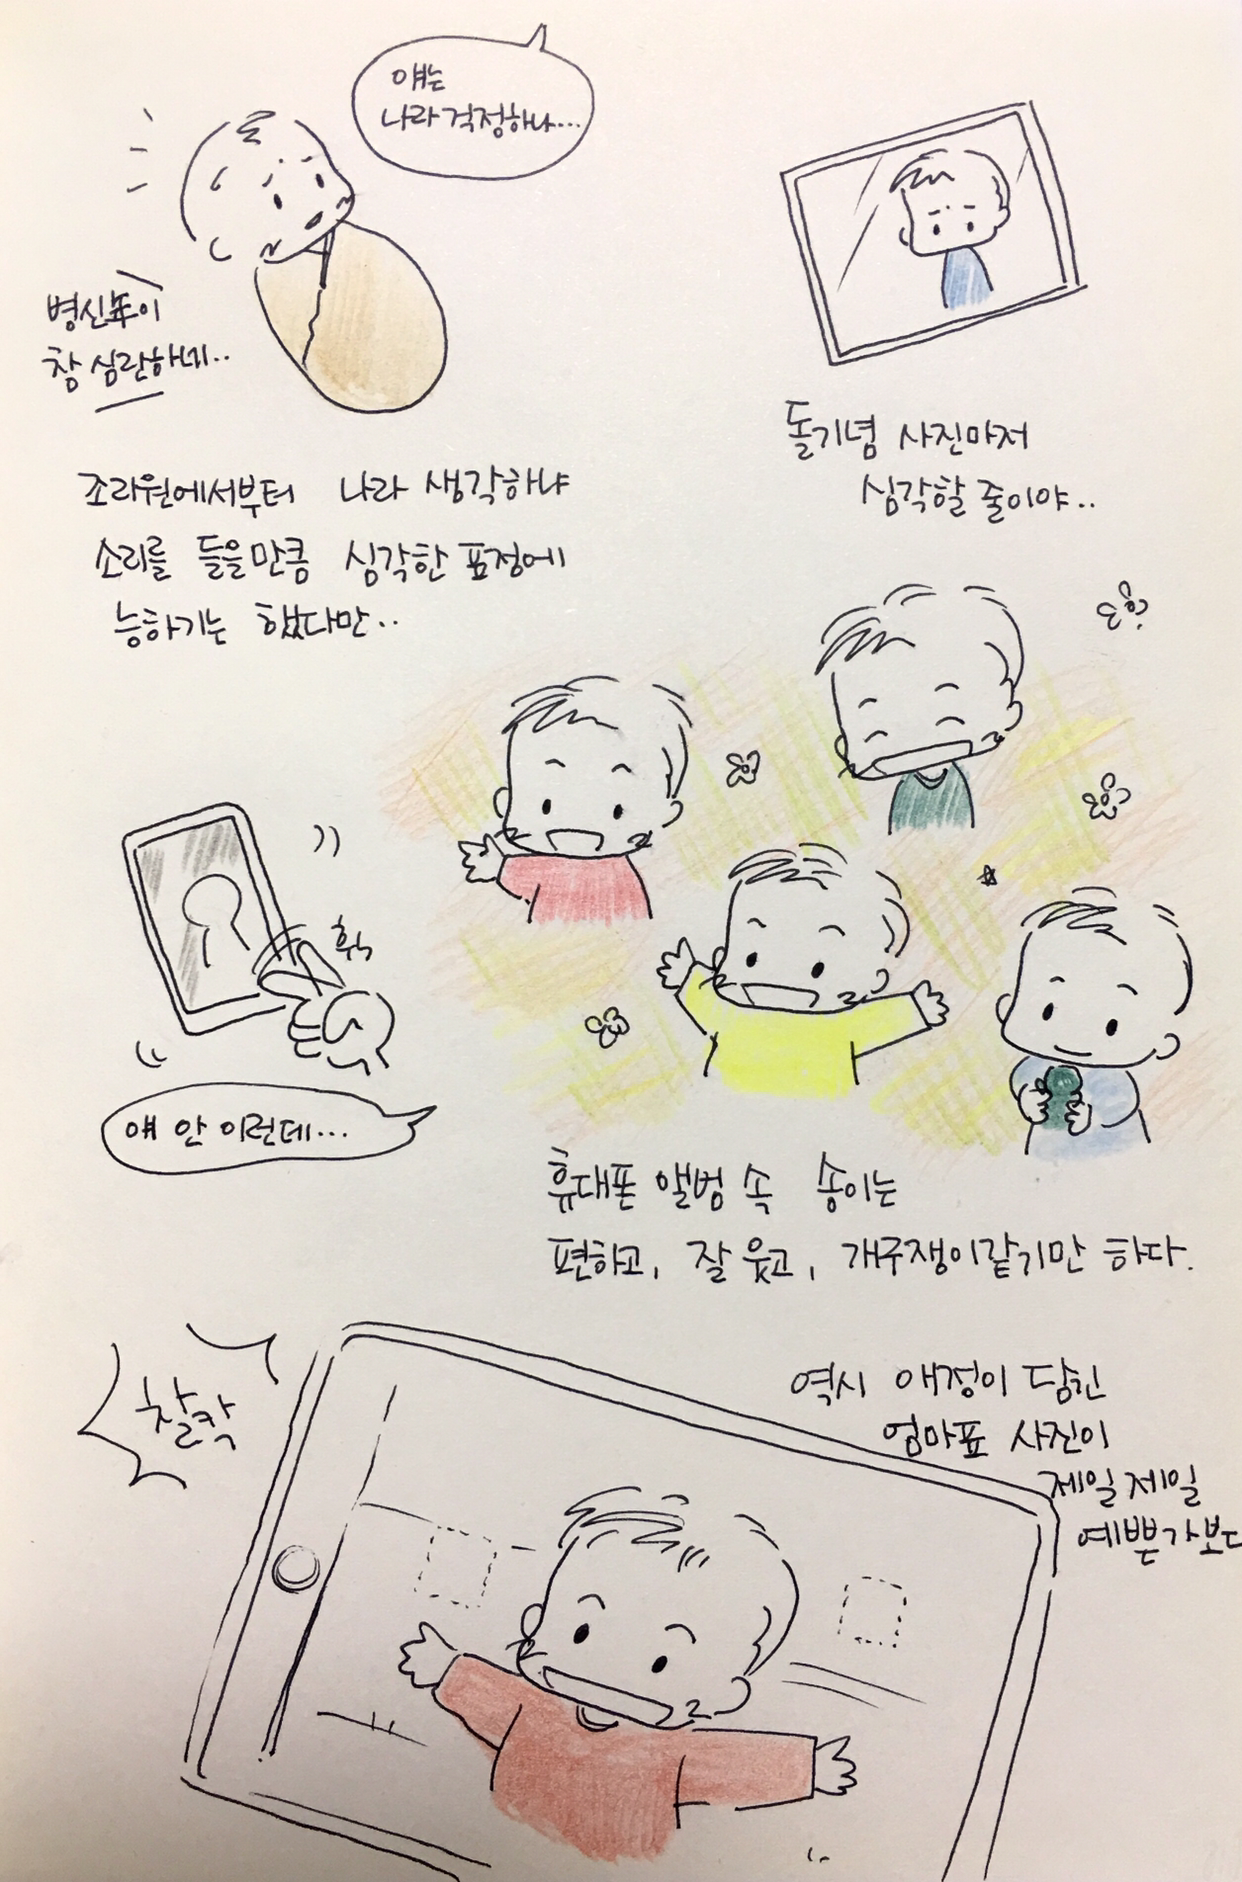 얘는
나라걱정하나...
병신年이
참 심란하네..
조리원에서부터 나라 생각하냐
소리를 들을만큼 심각한 표정에
능하기는 했다만..
돌기념 사진마저
심각할 줄이야..
휙
얘 안 이런데...
휴대폰 앨범 속 송이는
편하고, 잘 웃고, 개구쟁이같기만 하다.
찰칵
역시 애정이 담긴
엄마표 사진이
제일 제일
예쁜가보다